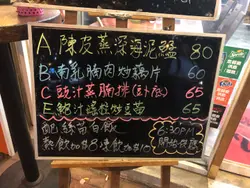 A.陳皮蒸深海泥鯭 80
B.南乳腩肉炒藕片 60
C.豉汁蒸腩排(卦底) 65
E.鮑汁爆拉炒豆苗 65
配絲苗白飯
熱飲加$8凍飲加$10
6:30PM
開始供應